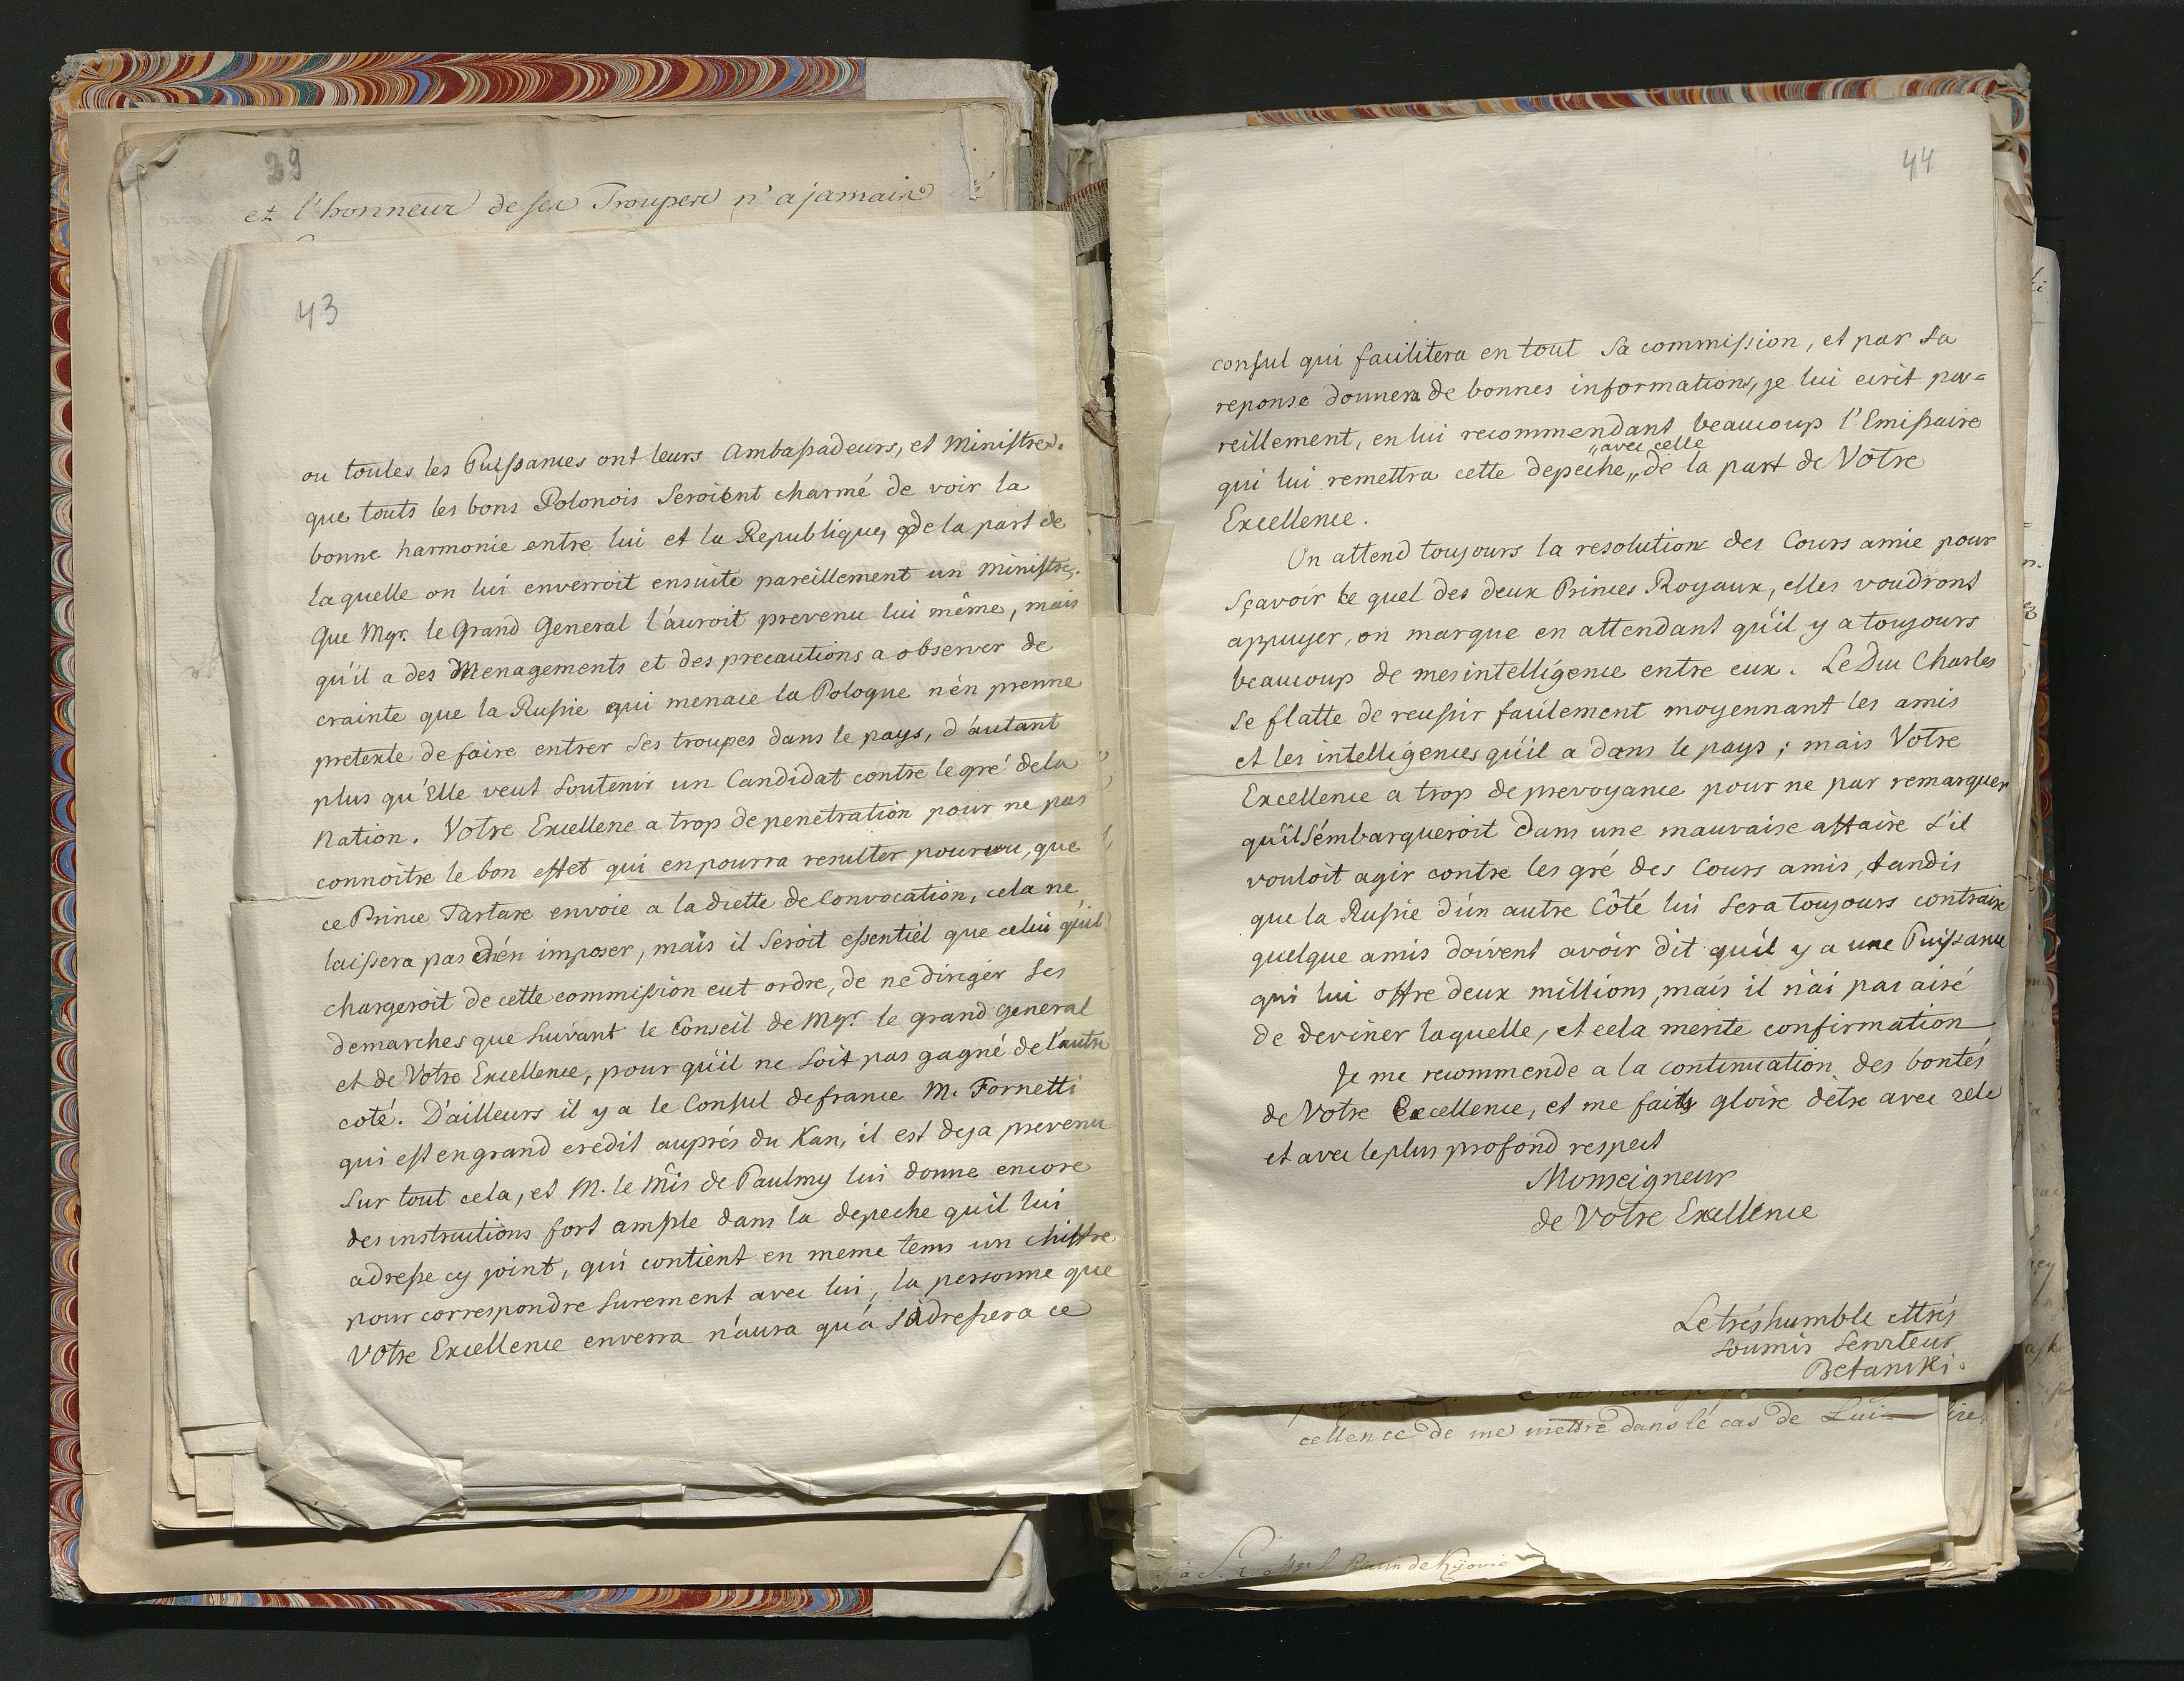 39
et l'honneur de ses Troupes n'a jamais
43
ou toutes les Puissances ont leurs Ambassadeurs, et Ministres.
que touts les bons Polonois seroient charmé de voir la
bonne harmonie entre lui et la Republique, de la part de
laquelle on lui enverroit ensuite pareillement un Ministre.
Que Mgr. le Grand General l'áuroit prevenu lui même, mais
qu'il a des Menagements et des precautions a observer de
crainte que la Russie qui menace la Pologne n'én prenne
pretexte de faire entrer ses troupes dans le pays, d'áutant
plus qu'Elle veut soutenir un Candidat contre le gré de la
Nation. Votre Excellene a trop de penetration pour ne pas
connoitre le bon effet qui en pourra resulter pourvu, que
ce Prince Tartare envoie a la diette de Convocation, cela ne
laissera pas d'én imposer, mais il seroit essentiél que celui qu'il
chargeroit de cette commission eut ordre, de ne diriger ses
demarches que suivant le Conseil de Mgr. le grand General
et de Votre Excellence, pour qu'il ne soit pas gagné de l'autre
coté. D'ailleurs il y a le Consul de france M. Fornetti
qui est en grand credit auprés du Kan, il est deja prevenu
sur tout cela, et M. le Mis de Paulmy lui donne encore
des instructions fort ample dans la depeche qu'il lui
adresse cy joint, qui contient en meme tems un chiffre
pour correspondre surement avec lui, la personne que
Votre Excellence enverra n'áura qu'á s'ádresser a ce
44
consul qui facilitera en tout sa commission, et par sa
reponse donnera de bonnes informations, je lui ecrit pa=
reillement, en lui recommendant beaucoup l'Emissaire
„avec celle
qui lui remettra cette depeche „ de la part de Votre
Excellence.
On attend toujours la resolution des Cours amie pour
sçavoir le quel des deux Princes Royaux, elles voudront
appuyer, on marque en attendant qu'il y a toujours
beaucoup de mesintelligence entre eux. Le Duc Charles
se flatte de reussir facilement moyennant les amis
et les intelligences qu'il a dans le pays; mais Votre
Excellence a trop de prevoyance pour ne pas remarquer
qu'il s'émbarqueroit dans une mauvaise affaire s'il
vouloit agir contre les gré des Cours amis, tandis
que la Russie d'un autre Côté lui sera toujours contraire
quelque amis doivent avoir dit qu'il y a une Puissance
qui lui offre deux millions, mais il n'ai pas aisé
de deviner laquelle, et cela merite confirmation
Je me recommende a la continuation des bontés
de Votre Excellence, et me faits gloire détre avec zele
et avec le plus profond respect
Monseigneur
de Votre Excellence
Le trés humble et trés
soumis serviteur
Betanski.
cellence de me mettre dans le cas de Lui
de Kijovie